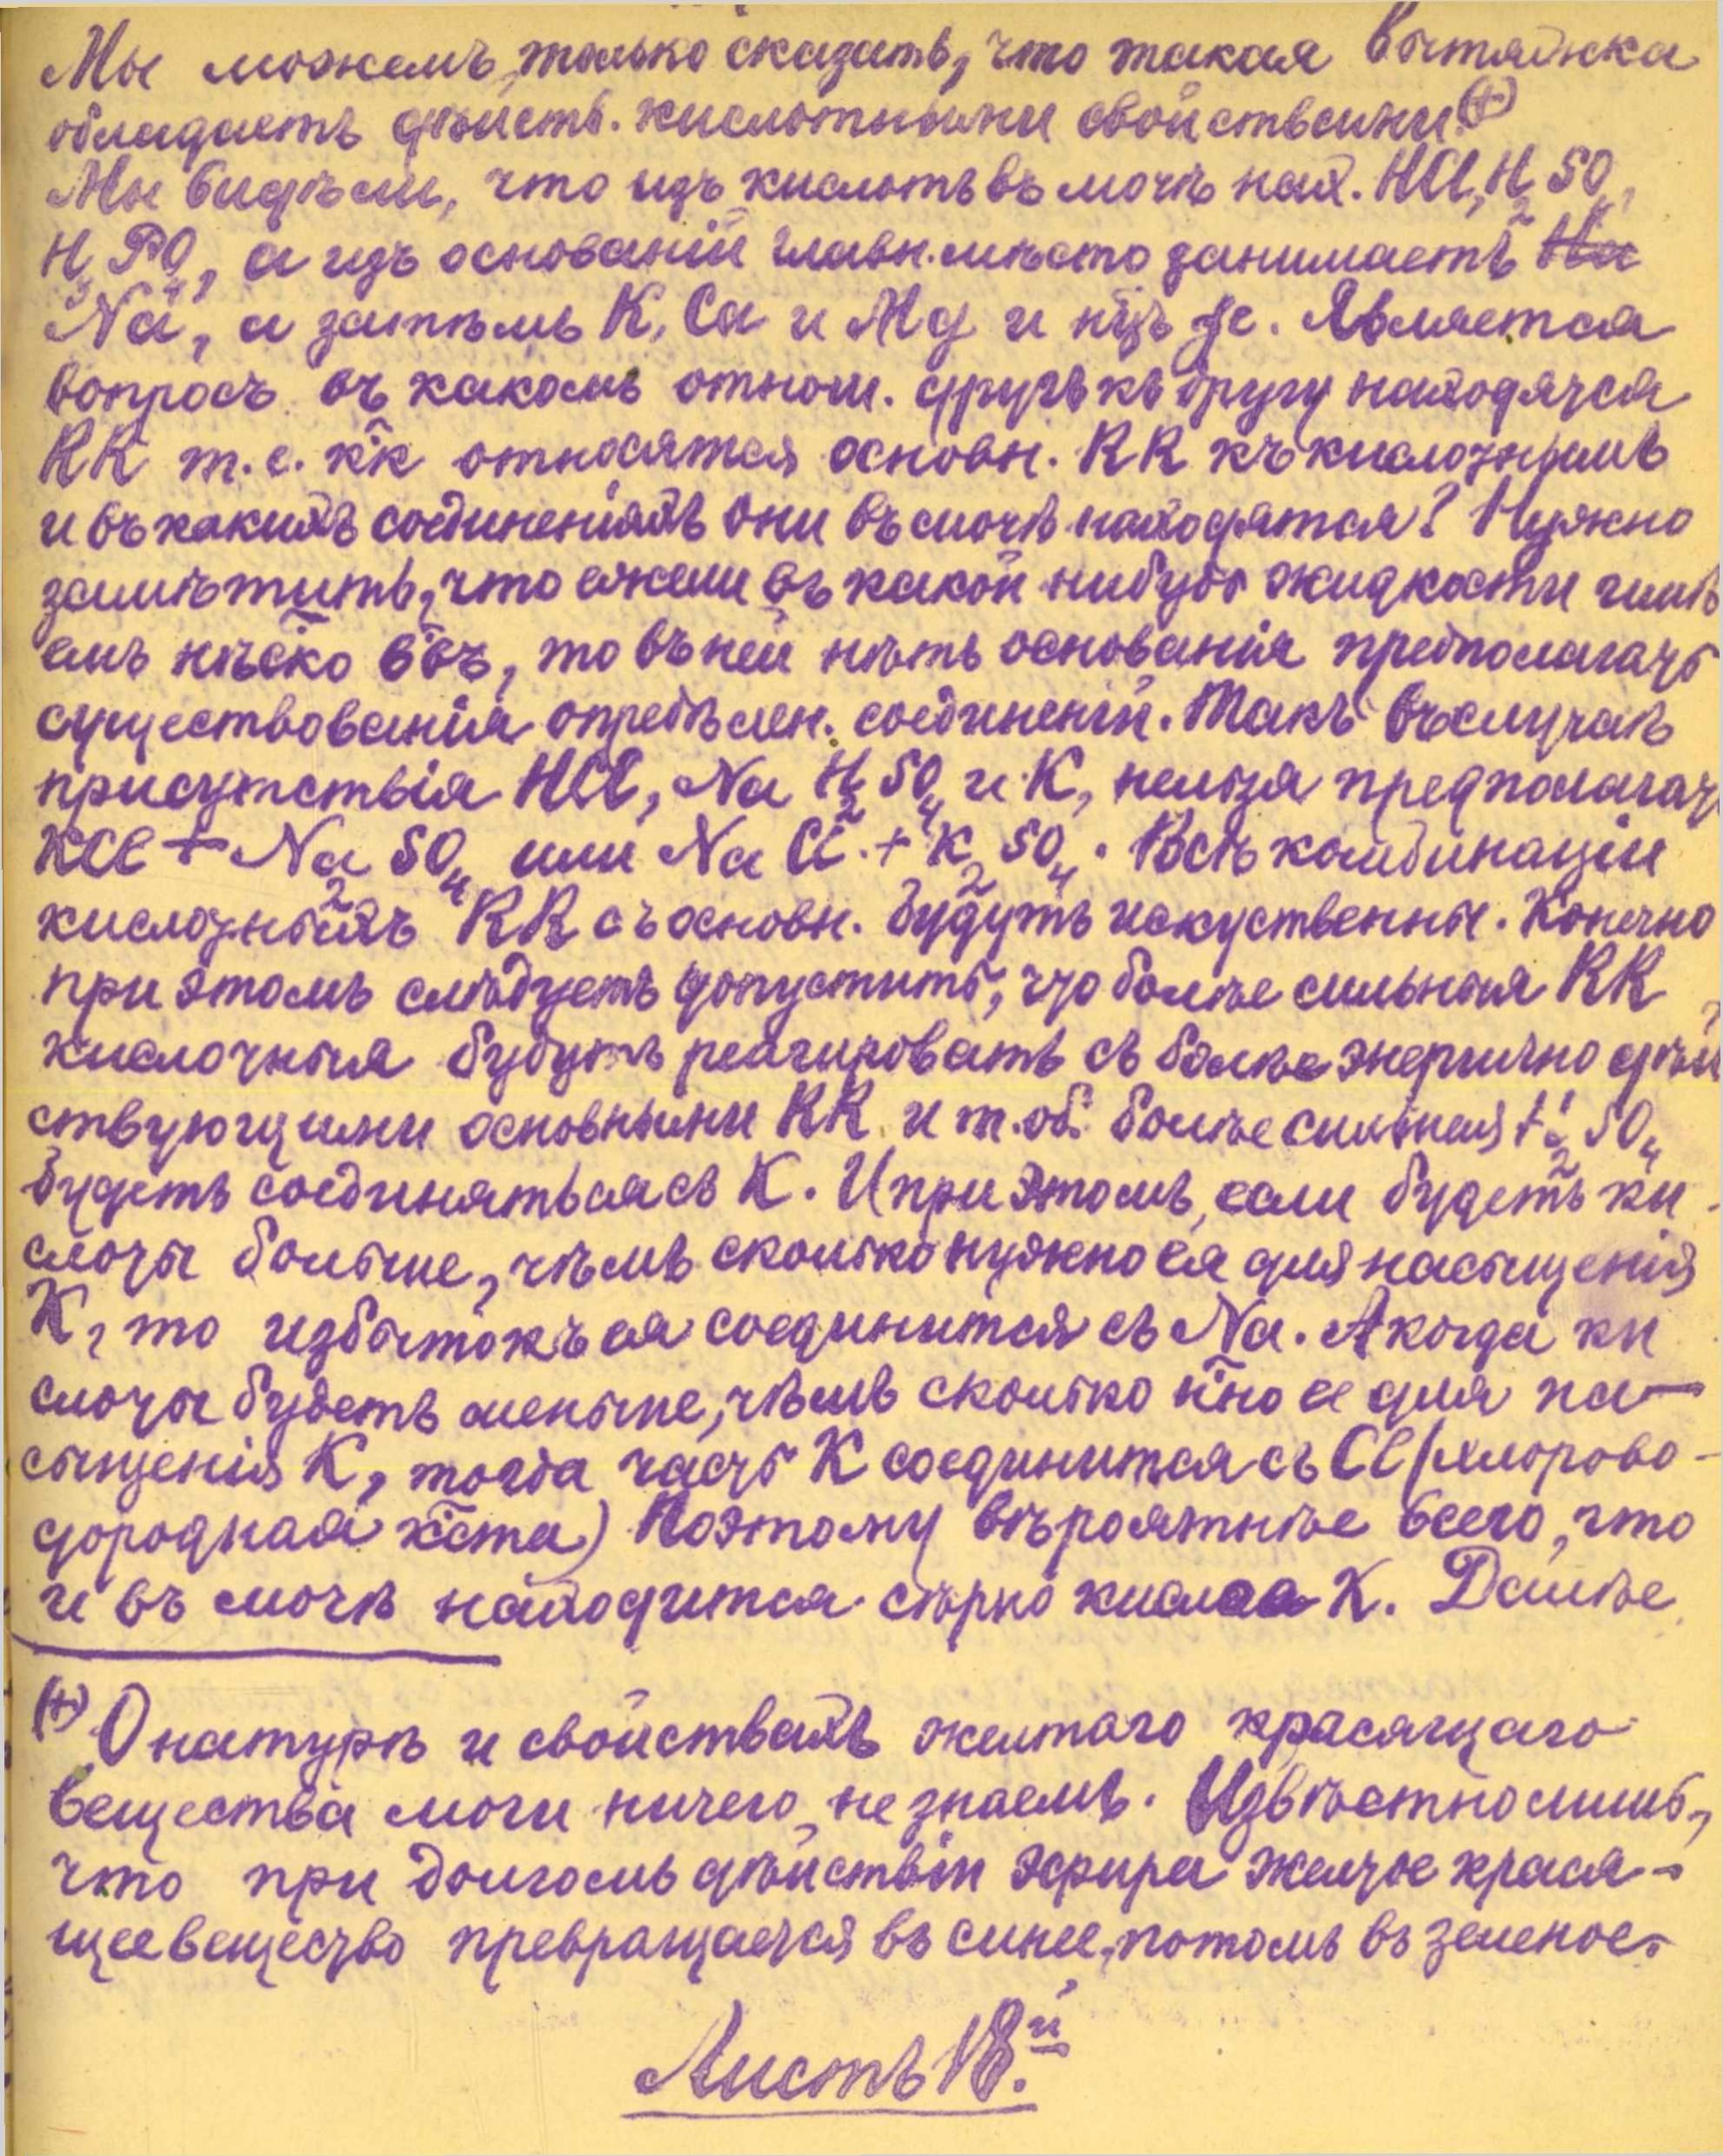 Мы можемъ только сказать, что такая вытяжка
обладаетъ дѣйств. кислотными свойствами.(+)
Мы видѣли, что изъ кислотъ въ мочѣ нах. HCl, H₂SO₄,
H₃PO₄, а изъ основаній главн. мѣсто занимаетъ Na
Na, а затѣмъ K, Ca и Mg и нѣз Fe. Является
вопросъ въ какомъ отнош. другъ къ другу находятся
RR т.е. к̃к относятся основн. RR къ кислотнымъ
и въ какихъ соединеніяхъ они въ мочѣ находятся? Нужно
замѣтить, что ежели въ какой нибудь жидкости имѣ
емъ нѣско в̃въ, то въ ней нѣтъ основанія предполагать
существованія опредѣлен. соединеній. Такъ въ случаѣ
присутствія HCl, Na H₂SO₄ и K, нельзя предполагать
KCl + Na₂SO₄ или NaCl + K₂SO₄. Всѣ комбинаціи
кислотныхъ RR съ основн. будутъ искуственны. Конечно
при этомъ слѣдуетъ допустить, что болѣе сильныя RR
кислотныя будутъ реагировать съ болѣе энергично дѣй
ствующими основными RR и т.об. болѣе сильная H₂SO₄
будетъ соединяться съ K. И при этомъ, если будетъ ки-
слоты больше, чѣмъ сколько нужно ея для насыщенія
K, то избытокъ ея соединится съ Na. А когда ки
слоты будетъ меньше, чѣмъ сколько н̃но ее для на-
сыщенія K, тогда часть K соединится съ Cl (хлорово-
дородная к̃ста) Поэтому вѣроятнѣе всего, что
и въ мочѣ находится сѣрно кислая K. Далѣе
(+) О натурѣ и свойствахъ желтаго красящаго
вещества мочи ничего не знаемъ. Извѣстно лишь,
что при долгомъ дѣйствіи эфира желтое крася-
щее вещество превращается въ синее, потомъ въ зеленое.
Листъ 18.й